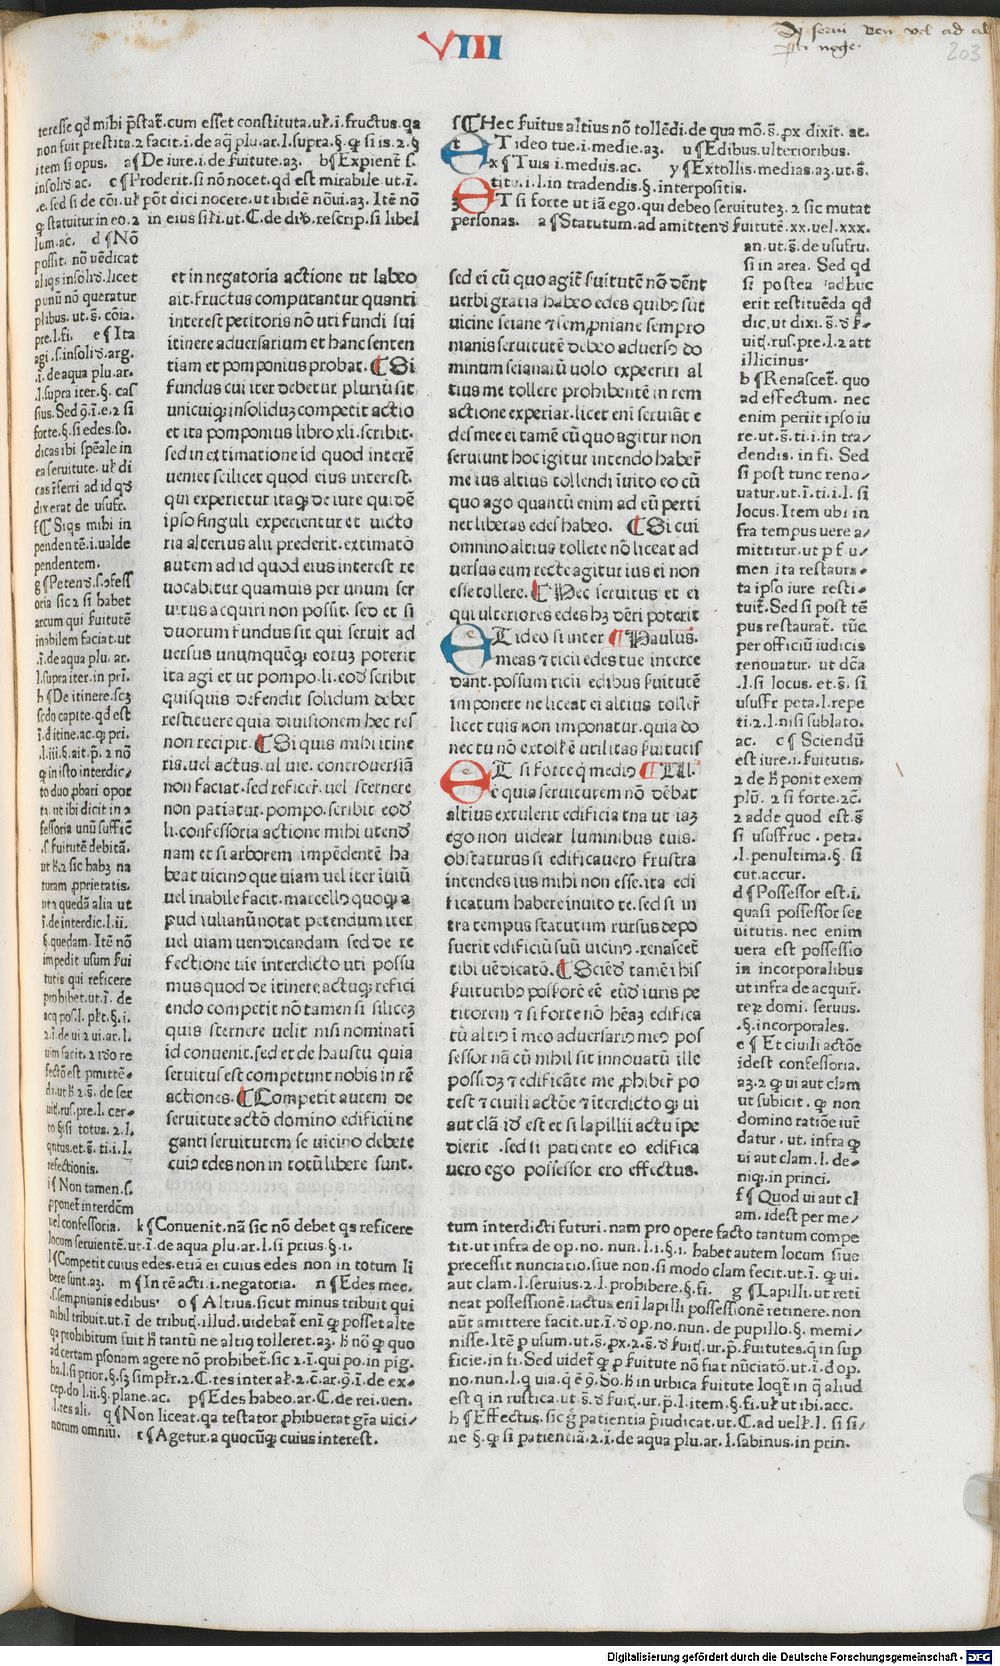 VIII
203
teresse qd mihi p̄stat̄. cum esset constituta. uł. i. fructus. qa
non fuit prestita. 2 facit. i. de aq̄ plu. ar. l. supra. §. ꝙ si is. 2. §
item si opus. a ¶ De iure. i. de ẜuitute. aʒ. b ¶ Expient̄ ẜ.
insolid̄. ac. c ¶ Proderit. si nō nocet. qd est mirabile. ut. ī.
.e. sed si de cōi. uł pōt dici nocere. ut ibidē nōui. aʒ. Itē nō
ꝙ statuitur in eo. 2 in eius sili. ut. C. de diū. rescrip. si libel
lum. ac. d ¶ Nō
possit. nō uēdicat
aliqs insolid̄. licet
punū nō queratur
plibus. ut. s̄. cōia.
pre. l. fi. e ¶ Ita
agi. ẜ. insolid̄. arg.
.ī. de aqua plu. ar.
.l. supra iter. §. cas
sius. Sed 9. ī. e. 2 si
forte. §. si edes. so.
dicas ibi spēale in
ea seruitute. uł di
cas r̄ferri ad id qd̄
dixerat de usufr.
f ¶ Siqs mihi in
pendentē. i. ualde
pendentem.
g ¶ Petend̄. ẜ. ↄfess
oria sic 2 si habet
arcum qui ẜuitutē
inabilem faciat. ut
.ī. de aqua plu. ar.
.l. supra iter. in pri.
h ¶ De itinere. scʒ
sedo capite. qd est
.i. ditine. ac. ꝙ pri.
.l. iii. §. ait. p̄. 2 nō
ꝙ in isto interdic/
to duo ꝓbari opor
tȝ. ut ibi dicit in 2
fessoria unū suffic̄
.ẜ ẜuitutē debitā.
ut h̄. 2 sic habʒ na
turam ꝓprietatis.
ut 2 quedā alia ut
ī. de interdic. l. ii.
§. quedam. Itē nō
impedit usum ẜui
tutis qui reficere
prohibet. ut. ī. de
acq pos. l. płt. §. i.
2 .ī. de ui 2 ui. ar. l.
uim facit. 2 idō re
fectō est pmittē/
da. ut h̄ 2. s̄. de ser
uit. rus. pre. l. cer/
to §. si totus. 2. l.
qntus. et. s̄. ti. i. l.
refectionis.
i ¶ Non tamen. ẜ.
ꝓponet̄ interdc̄m
uel confessoria. k ¶ Conuenit. nā sic nō debet qs reficere
locum seruientē. ut. ī. de aqua plu. ar. l. si prius. §. i.
l ¶ Competit cuius edes. etiā ei cuius edes non in totum li
bere sunt. aʒ. m ¶ In rē acti. i. negatoria. n ¶ Edes mee.
.ẜ. sempnianis edibus. o ¶ Altius. sicut minus tribuit qui
nihil tribuit. ut. ī. de tribuꝗ. illud. uidebat̄ eni ꝙ posset alte
qa prohibitum fuit h̄ tantū ne altiꝰ tolleret. aʒ. h̄ nō ꝙ quo
ad certam psonam agere nō prohibet̄. sic 2. ī. qui po. in pig.
ba. l. si prior. §. sʒ simplr̄. 2. C. res inter ał. 2. c̄. ar. 9. ī. de ex/
cep. do l. ii. §. plane. ac. p ¶ Edes habeo. ar. C. de rei. uen.
.l. res ali. q ¶ Non liceat. qa testator ꝓhibuerat gr̄a uici/
norum omniū. r ¶ Agetur. a quocūꝙ cuius interest.
et in negatoria actione ut labeo
ait. fructus computantur quanti
interest petitoris nō uti fundi sui
itinere aduersarium et hanc senten
tiam et pomponius probat. ¶ Si
fundus cui iter debetur pluriū sit
unicuiꝙ insoliduʒ competit actio
et ita pomponius libro xli. scribit.
sed in extimatione id quod interē
ueniet scilicet quod eius interest.
qui experietur itaꝙ de iure qui dē
ipso singuli experientur et uicto
ria alterius alii prederit. extimatō
autem ad id quod eius interest re
uocabitur quamuis per unum ser
uitus acquiri non possit. sed et si
duorum fundus sit qui seruit ad
uersus unumquēꝙ eoruʒ poterit
ita agi et ut pompo. li. eod̄ scribit
quisquis defendit solidum debet
restituere quia diuisionem hec res
non recipit. ¶ Si quis mihi itine
ris. uel actus. ul uie. controuersiā
non faciat. sed reficer̄. uel sternere
non patiatur. pompo. scribit eod̄
li. confessoria actione mihi utend̄
nam et si arborem impēdentē ha
beat uicinꝰ que uiam uel iter iuiū
uel inabile facit. marcellꝰ quoꝙ a
pud iulianū notat petendum iter
uel uiam uendicandam sed de re
fectione uie interdicto uti possu
mus quod de itinere actuꝙ refici
endo competit nō tamen si siliceʒ
quis sternere uelit nisi nominati
id conuenit. sed et de haustu quia
seruitus est competunt nobis in rē
actiones. ¶ Competit autem de
seruitute actō domino edificii ne
ganti seruitutem se uicino debere
cuiꝰ edes non in totū libere sunt.
s ¶ Hec ẜuitus altius nō tollēdi. de qua mō. s̄. ꝓx dixit. ac.
t ET ideo tue. i. medie aʒ. u ¶ Edibus. ulterioribus.
x ¶ Tuis i. mediis. ac. y ¶ Extollis. medias. aʒ. ut. s̄.
titu. i. l. in tradendis. §. interpositis.
ʒ ET si forte ut iā ego. qui debeo seruituteʒ. 2 sic mutat
personas. a ¶ Statutum. ad amittend̄ ẜuitutē. xx. uel. xxx.
an. ut. s̄. de usufru.
si in area. Sed qd
si postea adhuc
erit restituēda qd
dic. ut dixi. s̄. d̄ ẜ/
uiꝗ. rus. pre. l. 2 att
illicinus.
b ¶ Renascet̄. quo
ad effectum. nec
enim periit ipso iu
re. ut. s̄. ti. i. in tra/
dendis. in fi. Sed
si post tunc reno/
uatur. ut. ī. ti. i. l. si
locus. Item ubi in
fra tempus uere a/
mittitur. ut p f u/
men ita restaura/
ta ipso iure resti/
tuit̄. Sed si post tē
pus restaurat̄. tūc
per officiū iudicis
renouatur. ut dc̄a
.l. si locus. et. s̄. si
ususfr peta. l. repe
ti. 2. l. nisi sublato.
ac. c ¶ Sciendū
est iure. i. ẜuitutis.
2 de h̄ ponit exem
plū. 2 si forte. 2c̄.
2 adde quod est. s̄
si ususfruc. peta.
.l. penultima. §. si
cut. accur.
d ¶ Possessor est. i.
quasi possessor ser
uitutis. nec enim
uera est possessio
in incorporalibus
ut infra de acquir̄.
rerʒ domi. seruus.
.§. incorporales.
e ¶ Et ciuili actōe
idest confessoria.
aʒ. 2 ꝙ ui aut clam
ut subicit. ꝙ non
domino ratiōe iur̄
datur. ut. infra ꝙ
ui aut clam. l. de/
niꝙ. in princi.
f ¶ Quod ui aut cl
am. idest per me/
tum interdicti futuri. nam pro opere facto tantum compe
tit. ut infra de op. no. nun. l. i. §. i. habet autem locum siue
precessit nunciatio. siue non. si modo clam fecit. ut. ī. ꝙ ui.
aut clam. l. seruius. 2. l. prohibere. §. fi. g ¶ Lapilli. ut reti
neat possessionē. iactus eni lapilli possessionē retinere. non
aūt amittere facit. ut. ī. d̄ op. no. nun. de pupillo. §. memi/
nisse. Itē ꝑ usum. ut. s̄. ꝓx. 2. s̄. d̄ ẜuiꝗ. ur. p̄. ẜuitutes. q̄ in sup
ficie. in fi. Sed uidet̄ ꝙ ꝑ ẜuitute nō fiat nūciatō. ut. ī. d̄ op.
no. nun. l. q̄ uia. q̄ ē 9. So. h̄ in urbica ẜuitute loqt̄ in q̄ aliud
est q̄ in rustica. ut s̄. d̄ ẜuiꝗ. ur. p̄. l. item. §. fi. uł ut ibi. acc.
h ¶ Effectus. sic g̊ patientia p̄iudicat. ut. C. ad uelł. l. si si/
ne §. ꝙ si patientiā. 2. ī. de aqua plu. ar. l. sabinus. in prin.
sed ei cū quo agit̄ ẜuitutē nō dēnt
uerbi gratia habeo edes quibꝰ sūt
uicine seiane ⁊ sempniane sempro
manis seruitutē debeo aduersꝰ do
minum seianarū uolo experiri al
tius me tollere prohibentē in rem
actione experiar. licet eni seruiāt e
des mee ei tamē cū quo agitur non
seruiunt hoc igitur intendo haber̄
me ius altius tollendi iuito eo cū
quo ago quantū enim ad eū perti
net liberas edes habeo. ¶ Si cui
omnino altius tollere nō liceat ad
uersus eum recte agitur ius ei non
esse tollere. ¶ Hec seruitus et ei
qui ulteriores edes hʒ dēri poterit
ET ideo si inter ¶ Paulus.
meas ⁊ ticii edes tue interce
dant. possum ticii edibus ẜuitutē
imponere ne liceat ei altius toller̄
licet tuis non imponatur. quia do
nec tu nō extoll̄e utilitas ẜuitutis
ET si forte q̄ mediꝰ ¶ Ul.
ē quia seruitutem nō dēbat
altius extulerit edificia tna ut iaʒ
ego non uidear luminibus tuis.
obstaturus si edificauero frustra
intendes ius mihi non esse. ita edi
ficatum habere inuito te. sed si in
tra tempus statutum rursus depo
suerit edificiū suū uicinꝰ. renascet̄
tibi uēdicatō. ¶ Sciēd̄ tamē i his
ẜuitutibꝰ possorē eē eūd̄ iuris pe
titorem ⁊ si forte nō hēaʒ edifica
tū altiꝰ i meo aduersariꝰ meꝰ pos
sessor nā cū nihil sit innouatū ille
possidʒ ⁊ edificāte me ꝓhiber̄ po
test ⁊ ciuili actōe ⁊ īterdicto ꝙ ui
aut clā. id̄ est et si lapillii actu ipe
dierit . sed si patiente eo edifica
uero ego possessor ero effectus.
Digitalisierung gefördert durch die Deutsche Forschungsgemeinschaft - DFG